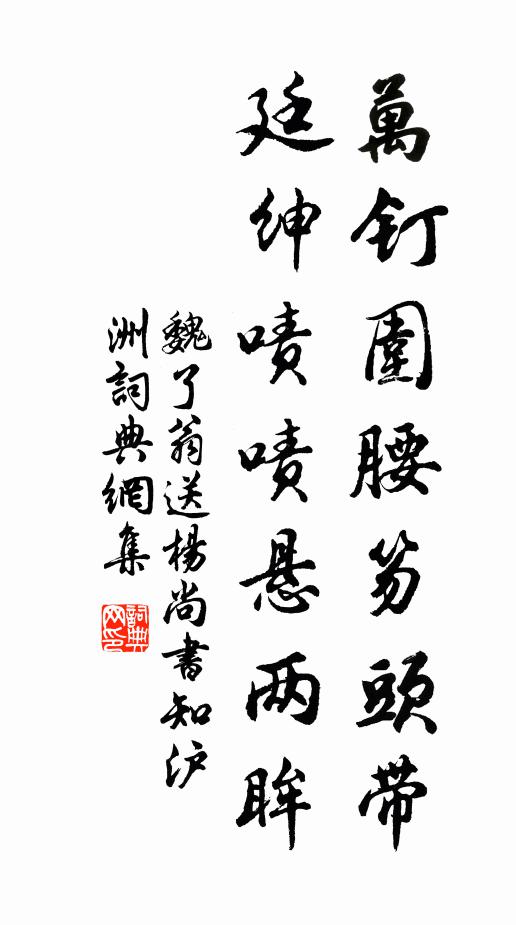 萬釘圍腰笏頭帶
廷紳嘖嘖悬两眸
魏了翁送楊尚書知沪
洲詞典網集
詞典网印